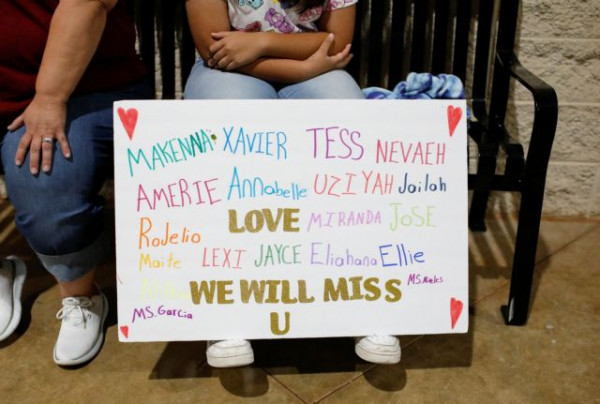 MAKENNA XAVIER TESS NEVAEH
AMERIE Annabelle UZIYAH Jailah
RoJelio LOVE MIRANDA JOSE
Maite LEXI JAYCE Eliahana Ellie
WE WILL MISS MS. Mireles
MS. Garcia U